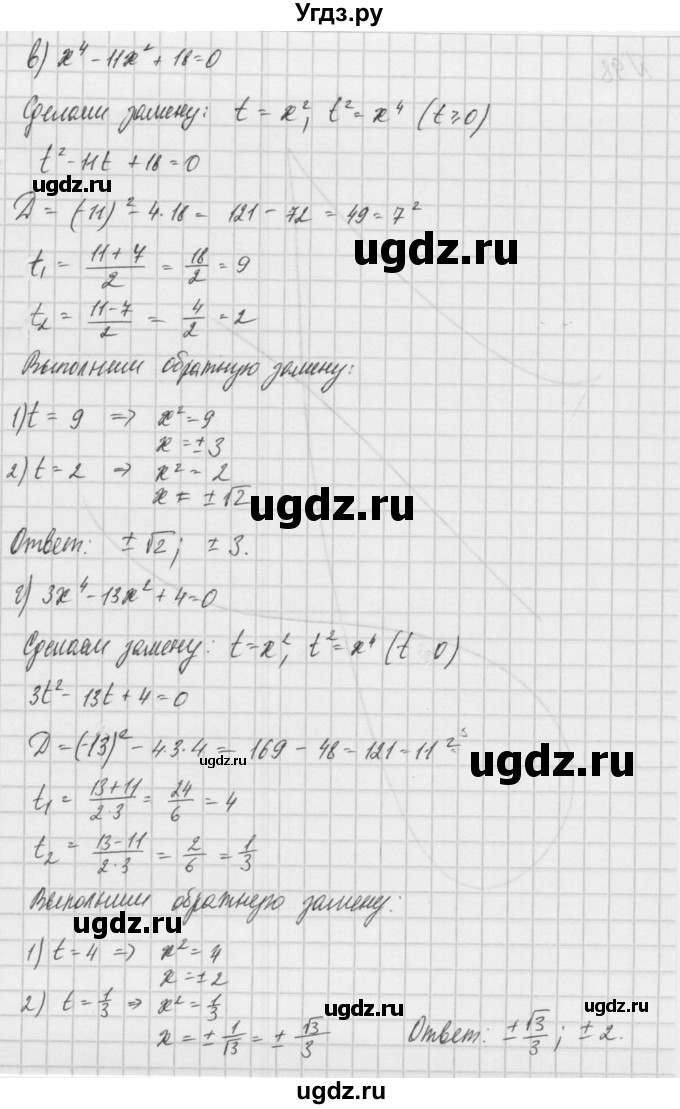 Угдз.ру
в) x⁴ - 11x² + 18 = 0
Сделаем замену: t = x², t² = x⁴ (t ≥ 0)
t² - 11t + 18 = 0
ugdz.ru
D = (-11)² - 4·18 = 121 - 72 = 49 = 7²
ugdz.ru
t₁ = (11+7)/2 = 18/2 = 9
t₂ = (11-7)/2 = 4/2 = 2
Выполним обратную замену:
1) t = 9 ⇒ x² = 9
x = ±3
2) t = 2 ⇒ x² = 2
x = ±√2
ugdz.ru
Ответ: ±√2; ±3.
ugdz.ru
г) 3x⁴ - 13x² + 4 = 0
Сделаем замену: t = x², t² = x⁴ (t 0)
ugdz.ru
3t² - 13t + 4 = 0
D = (-13)² - 4·3·4 = 169 - 48 = 121 = 11²
ugdz.ru
ugdz.ru
t₁ = (13+11)/(2·3) = 24/6 = 4
t₂ = (13-11)/(2·3) = 2/6 = 1/3
Выполним обратную замену:
ugdz.ru
1) t = 4 ⇒ x² = 4
x = ±2
2) t = 1/3 ⇒ x² = 1/3
ugdz.ru
x = ±1/√3 = ±√3/3
Ответ: ±√3/3; ±2.
ugdz.ru